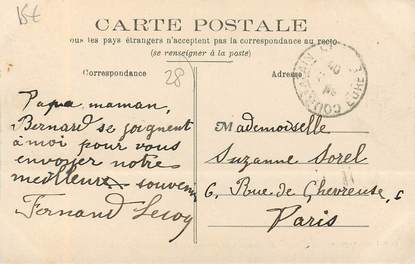 15t
CARTE POSTALE
ous les pays étrangers n'acceptent pas la correspondance au recto
(se renseigner à la poste)
Correspondance
28
Adresse
Papa, maman,
Bernard se joignent
à moi pour vous
envoyer notre
meilleurx souvenir
Fernand Lecoq
Mademoiselle
Suzanne Sorel
6, Rue de Chevreuse, 6
Paris